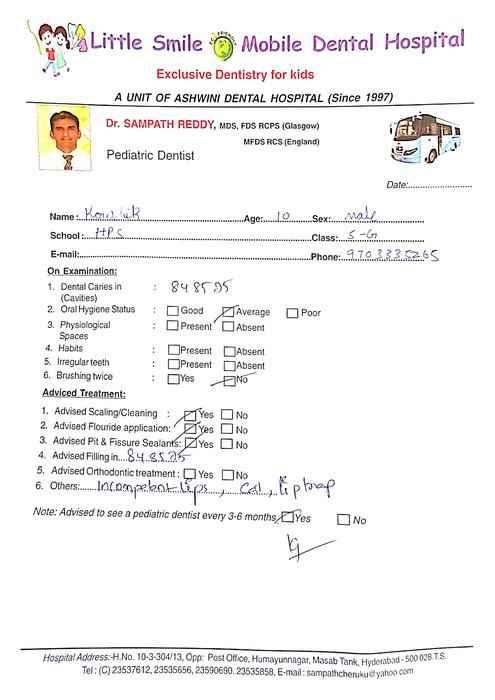 Little Smile Mobile Dental Hospital
Exclusive Dentistry for kids
A UNIT OF ASHWINI DENTAL HOSPITAL (Since 1997)
Dr. SAMPATH REDDY, MDS, FDS RCPS (Glasgow)
MFDS RCS (England)
Pediatric Dentist
Date:
Name: Age: 10 Sex: Male
School: HPS Class: 5-G
E-mail: Phone: 9703335265
On Examination:
1. Dental Caries in : 84 85 75
(Cavities)
2. Oral Hygiene Status : Good Average Poor
3. Physiological : Present Absent
Spaces
4. Habits : Present Absent
5. Irregular teeth : Present Absent
6. Brushing twice : Yes No
Adviced Treatment:
1. Advised Scaling/Cleaning : Yes No
2. Advised Flouride application: Yes No
3. Advised Pit & Fissure Sealants: Yes No
4. Advised Filling in 84 85 75
5. Advised Orthodontic treatment : Yes No
6. Others: Incompetent lips, lip trap
Note: Advised to see a pediatric dentist every 3-6 months Yes No
Hospital Address:-H.No. 10-3-304/13, Opp: Post Office, Humayunnagar, Masab Tank, Hyderabad - 500 028 T.S.
Tel : (C) 23537612, 23535656, 23590690, 23535858, E-mail : sampathcheruku@yahoo.com